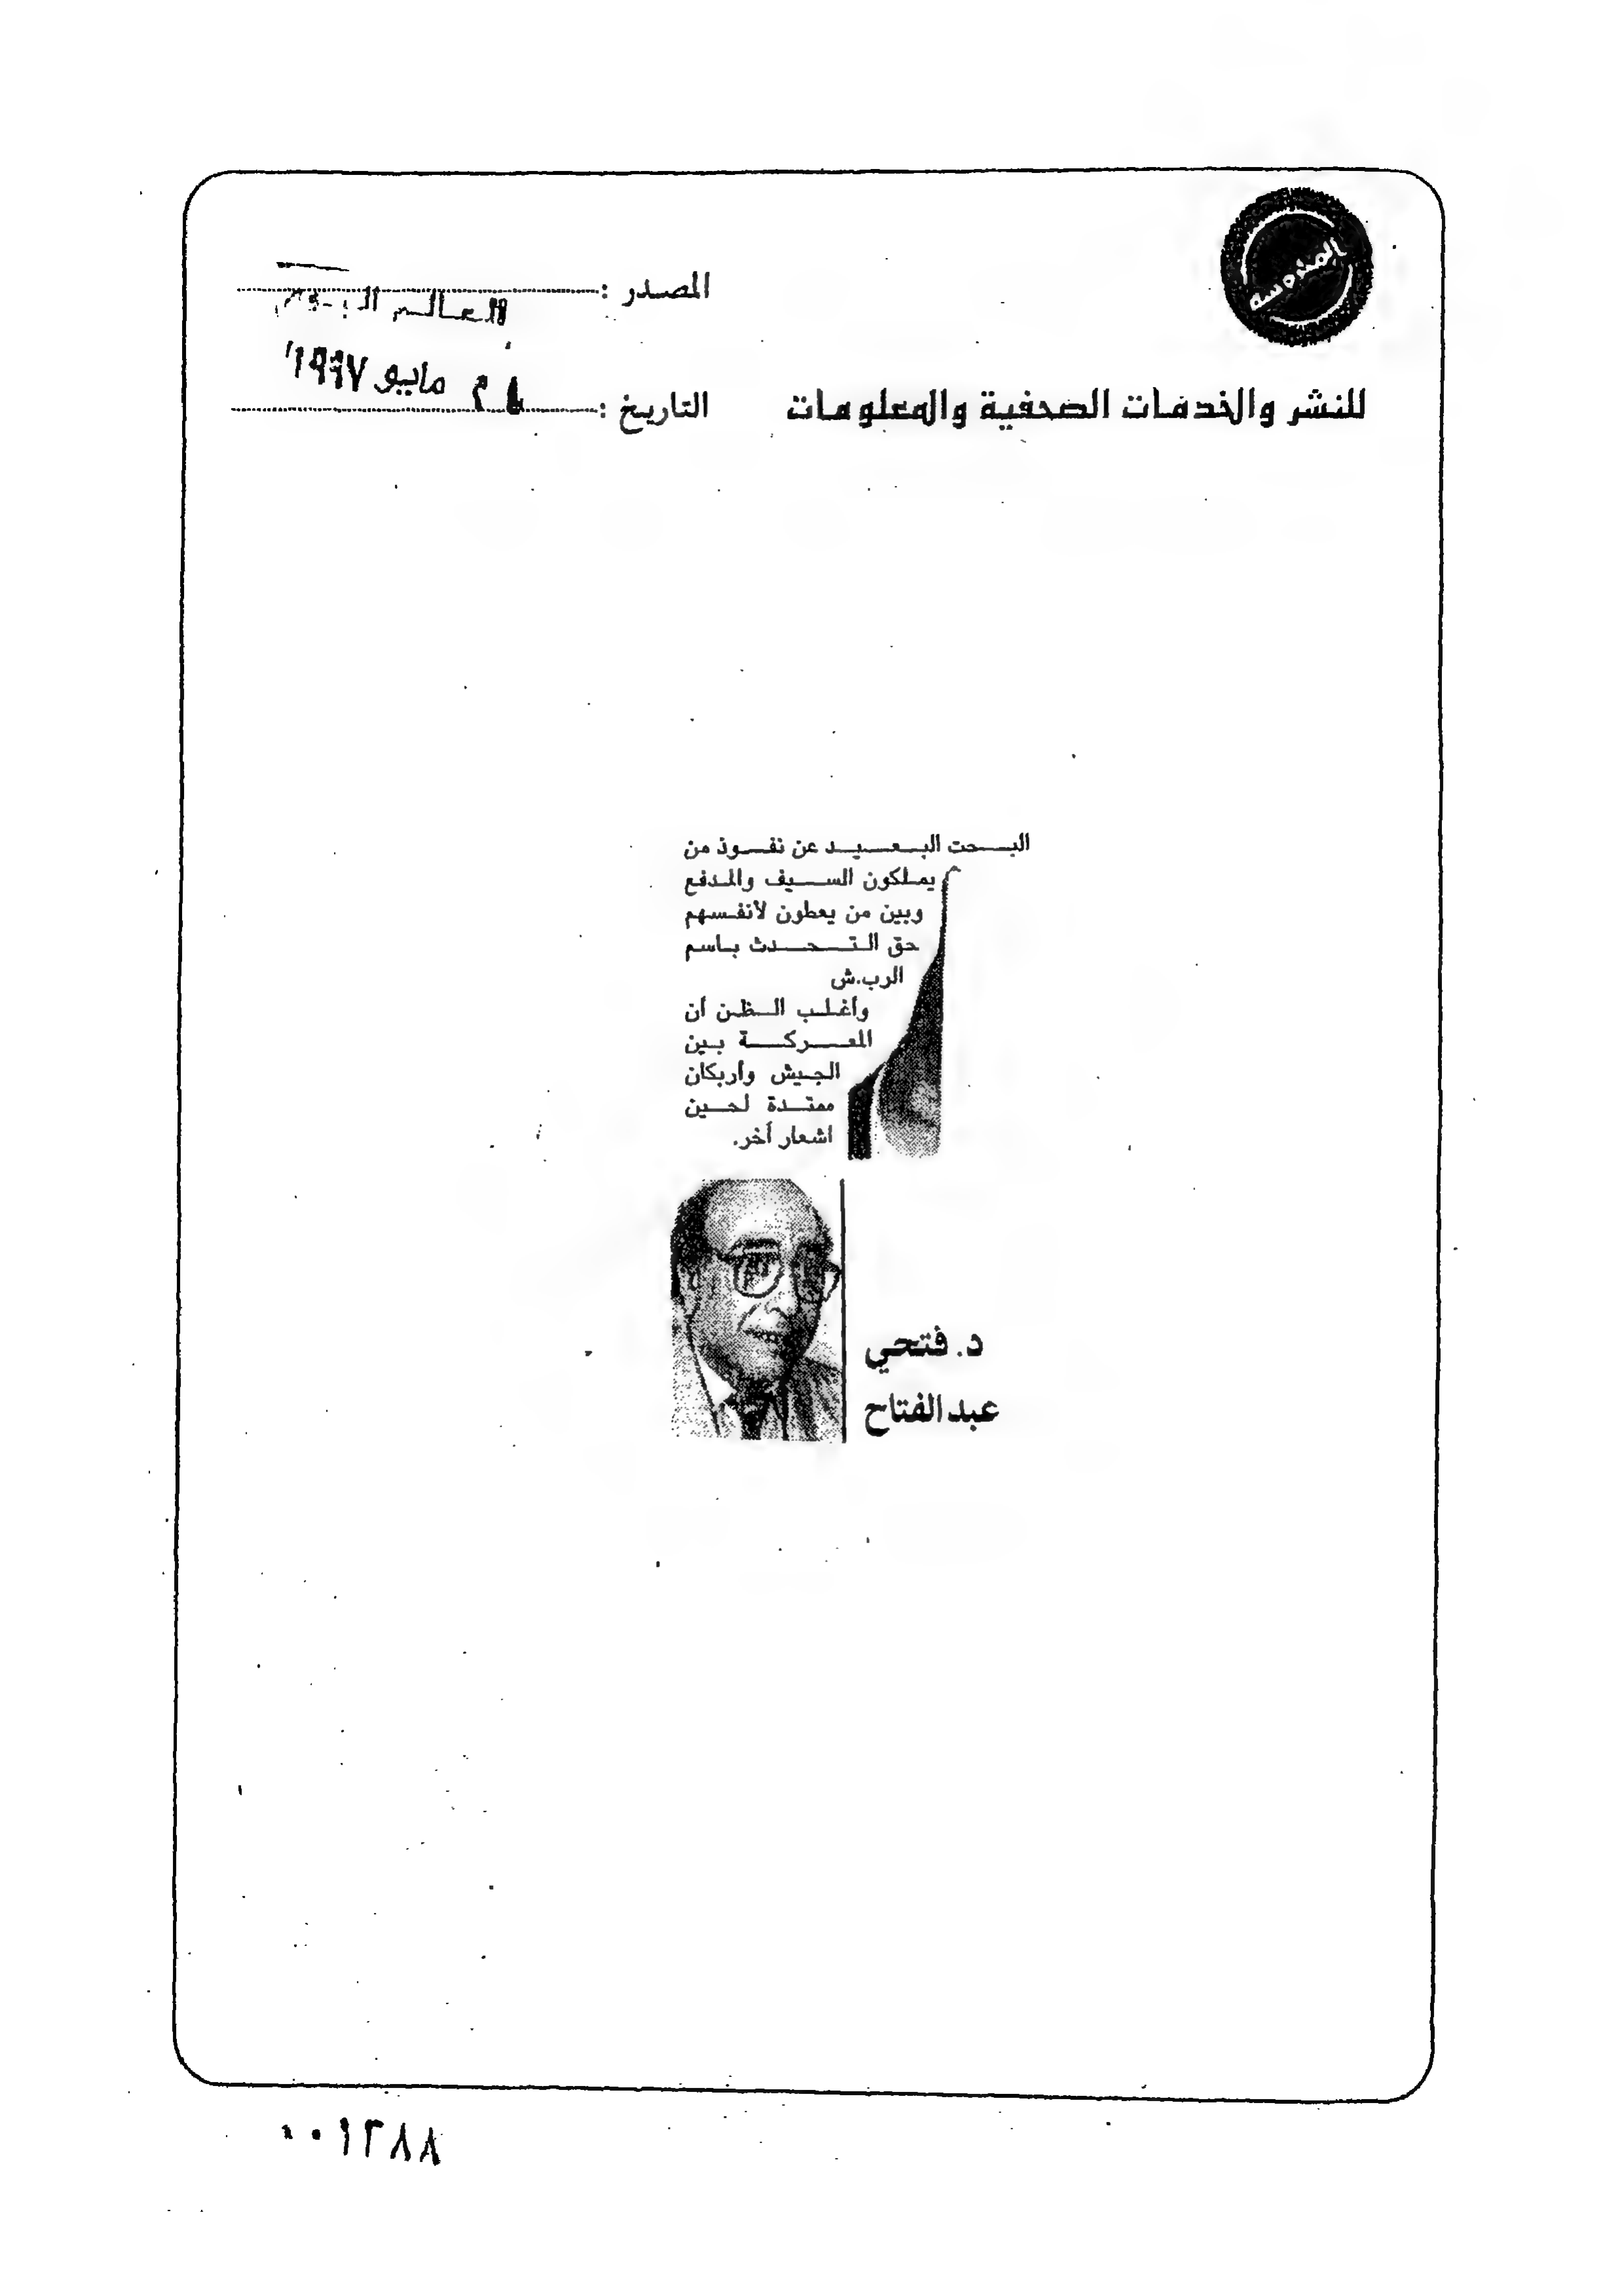 المصدر :
العالم
للنشر والخدمات الصحفية والمعلومات
التاريخ :
مايو ١٩٩٧
البحت البعيد عن نفوذ من
يملكون السيف والمدفع
وبين من يعطون لأنفسهم
حق التحدث باسم
الرب.ش
وأغلب الظن أن
المعركة بين
الجيش وأربكان
ممتدة لحين
اشعار أخر.
د. فتحي
عبدالفتاح
٠٠١٣٨٨